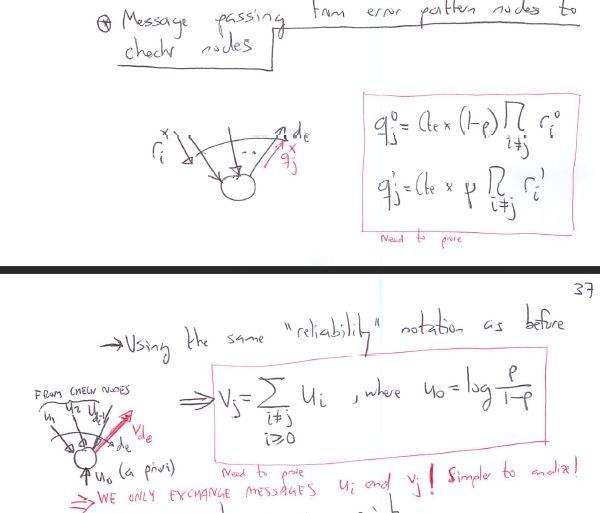 ⊛ Message passing from error pattern nodes to
check nodes
r_i^x ... d_e
q_j^x
q_j^0 = Cte × (1-p) ∏_{i≠j} r_i^0
q_j^1 = Cte × p ∏_{i≠j} r_i^1
Need to prove
37
→ Using the same "reliability" notation as before
FROM CHECK NODES
u_1 u_2 u_{de-1} V_{de}
de
u_0 (a priori)
⇒ V_j = ∑_{i≠j i≥0} u_i , where u_0 = log p/(1-p)
Need to prove
⇒ WE ONLY EXCHANGE MESSAGES u_i and v_j! Simpler to analize!